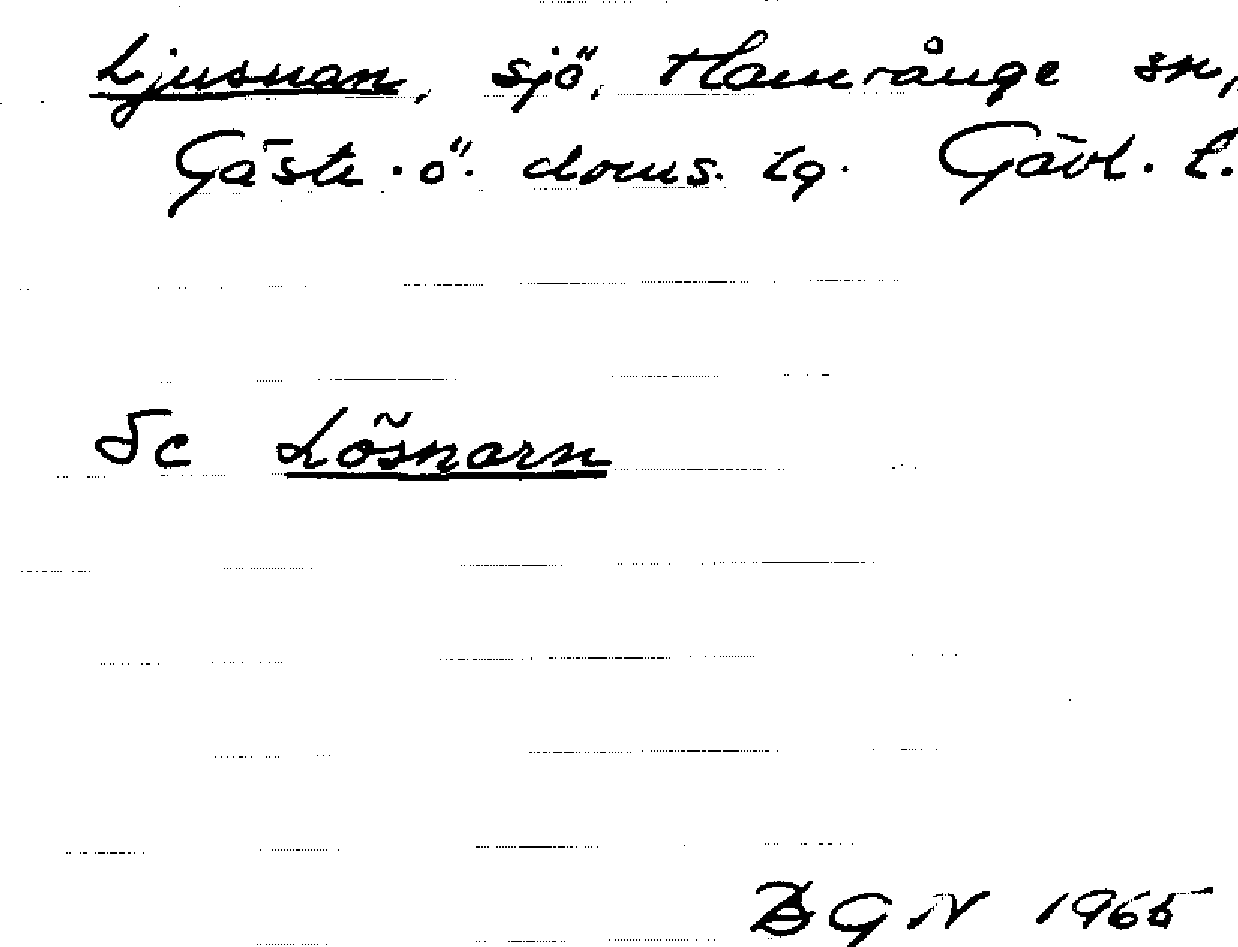 Ljusnan, sjö, Hamrånge sn,
Gästr. ö. doms. tg. Gävl. l.
Se Lösnarn
BGN 1965